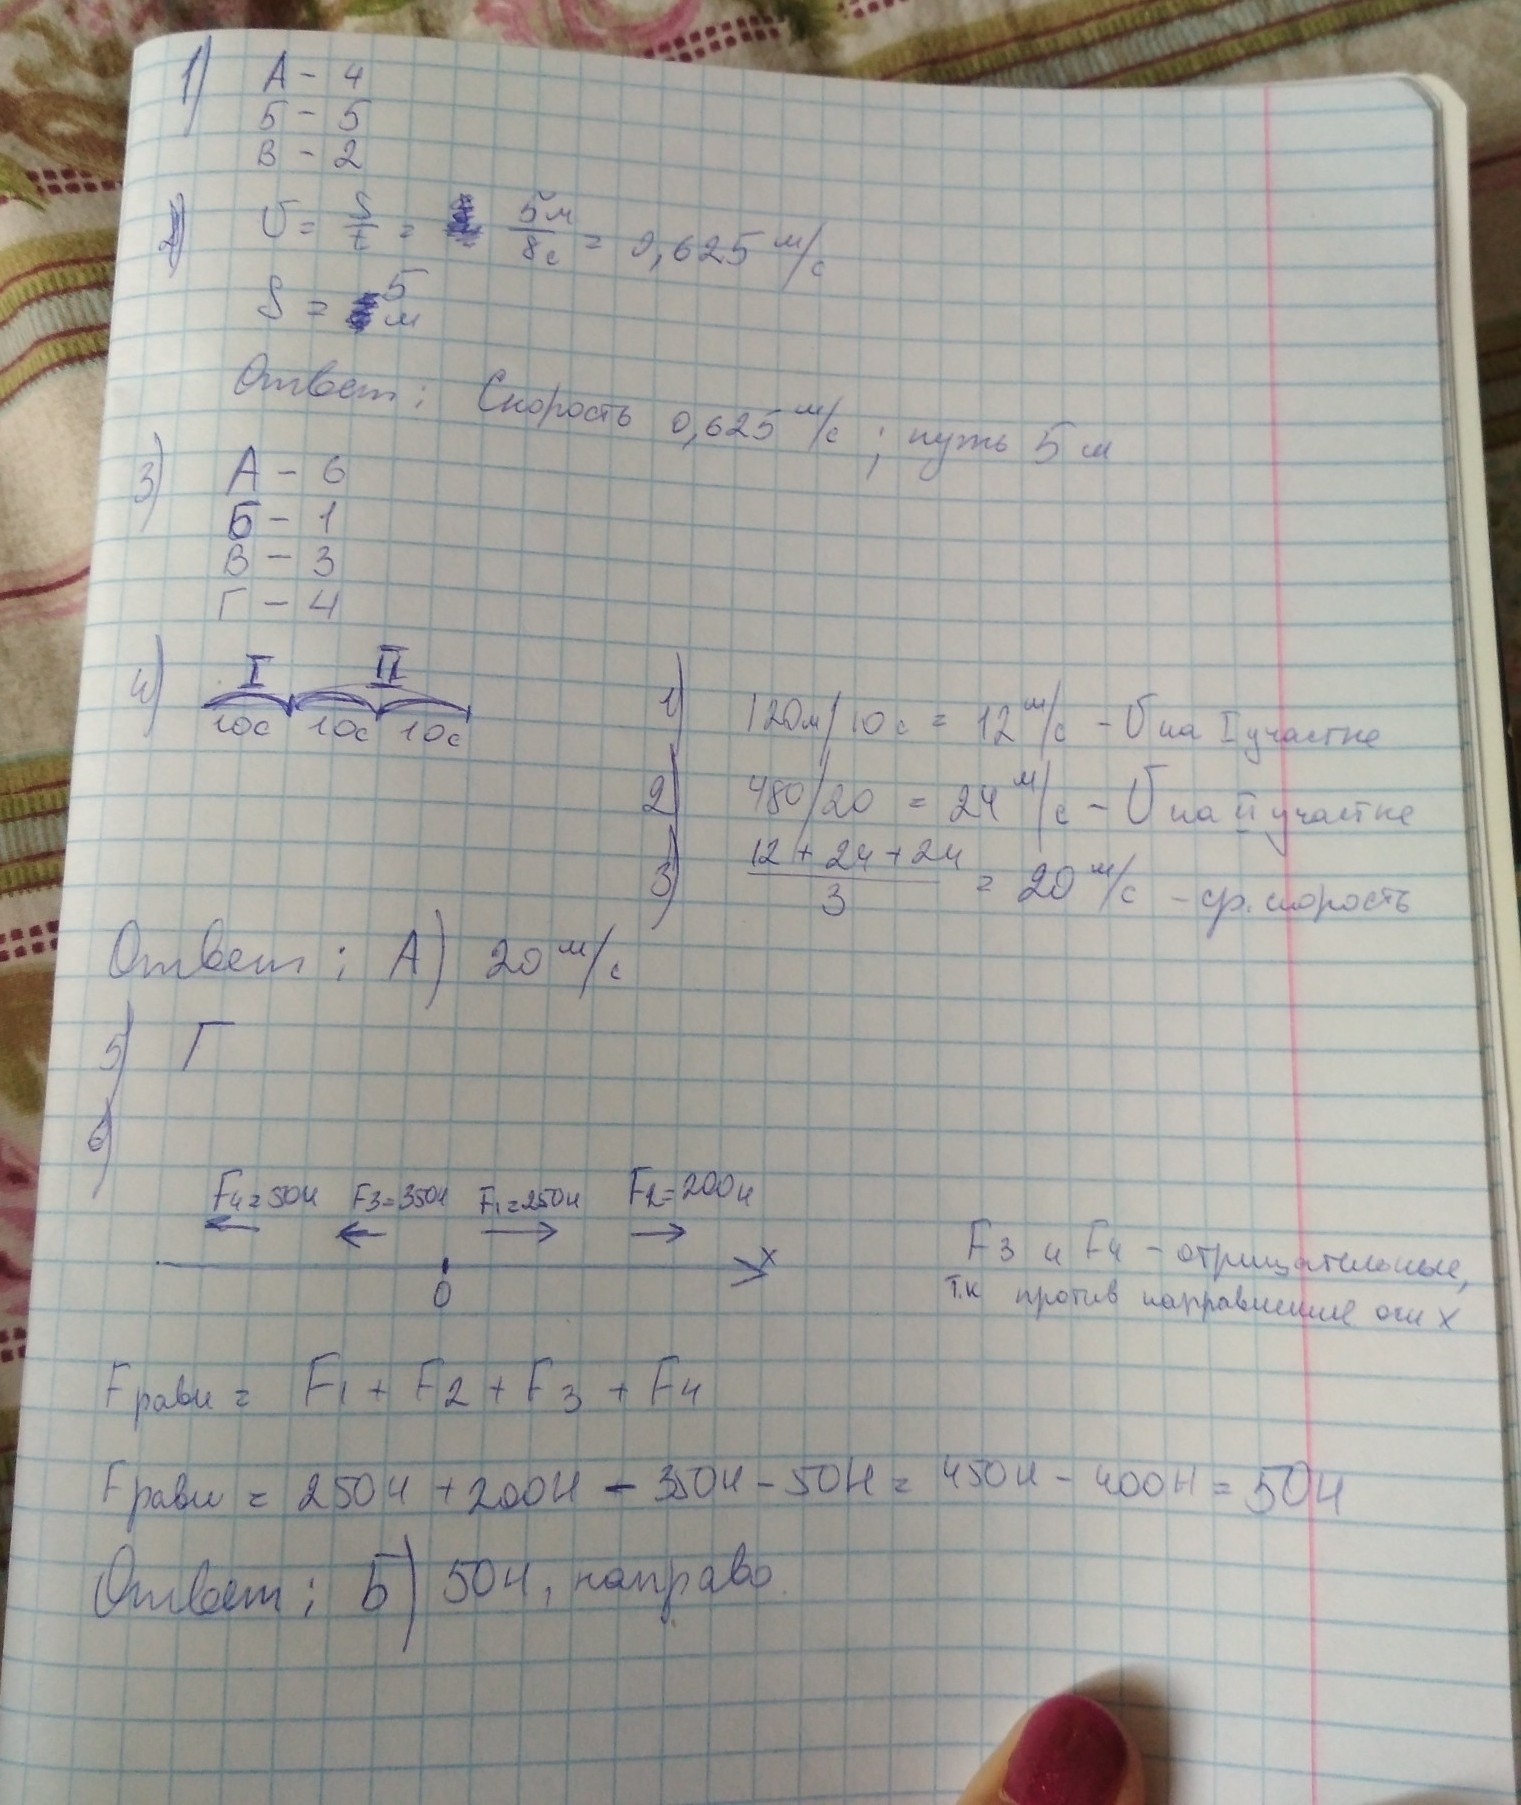 1) А - 4
Б - 5
В - 2
2) υ = S/t = 5м/8с = 0,625 м/с
S = 5 м
Ответ: Скорость 0,625 м/с ; путь 5 м
3) А - 6
Б - 1
В - 3
Г - 4
4) I II
10с 10с 10с
1) 120м/10с = 12 м/с - υ на I участке
2) 480/20 = 24 м/с - υ на II участке
3) (12 + 24 + 24)/3 = 20 м/с - ср. скорость
Ответ: А) 20 м/с
5) Г
6)
F4=50Н F3=350Н F1=250Н F2=200Н
0 x
F3 и F4 - отрицательные,
т.к против направление оси x
Fравн = F1 + F2 + F3 + F4
Fравн = 250Н + 200Н - 350Н - 50Н = 450Н - 400Н = 50Н
Ответ: Б) 50Н, направо.